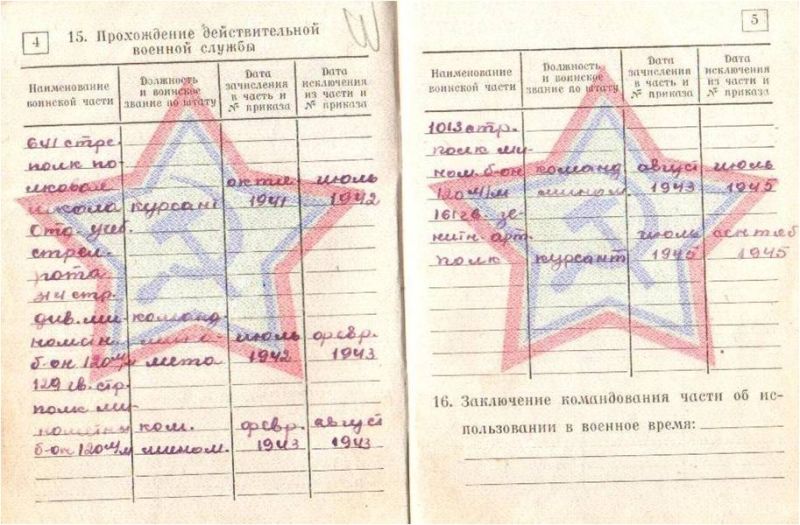 4
15. Прохождение действительной
военной службы
Наименование воинской части
Должность и воинское звание по штату
Дата зачисления в часть и № приказа
Дата исключения из части и № приказа
641 стре.
полк по-
лковая октяб июль
школа курсант 1941 1942
Отд. учеб.
стрел.
рота
стр.
див. ми- команд.
нометн. мино- июль февр.
б-он 120 м/м мета 1942 1943
129 гв. стр.
полк ми-
нометн ком. февр. август
б-он 120 м/м мином. 1943 1943
5
Наименование воинской части
Должность и воинское звание по штату
Дата зачисления в часть и № приказа
Дата исключения из части и № приказа
1013 стр.
полк ми-
ном. б-он команд август июль
120 м/м мином. 1943 1945
161 гв. зе-
нитн. арт. июль сентяб
полк курсант 1945 1945
16. Заключение командования части об ис-
пользовании в военное время: